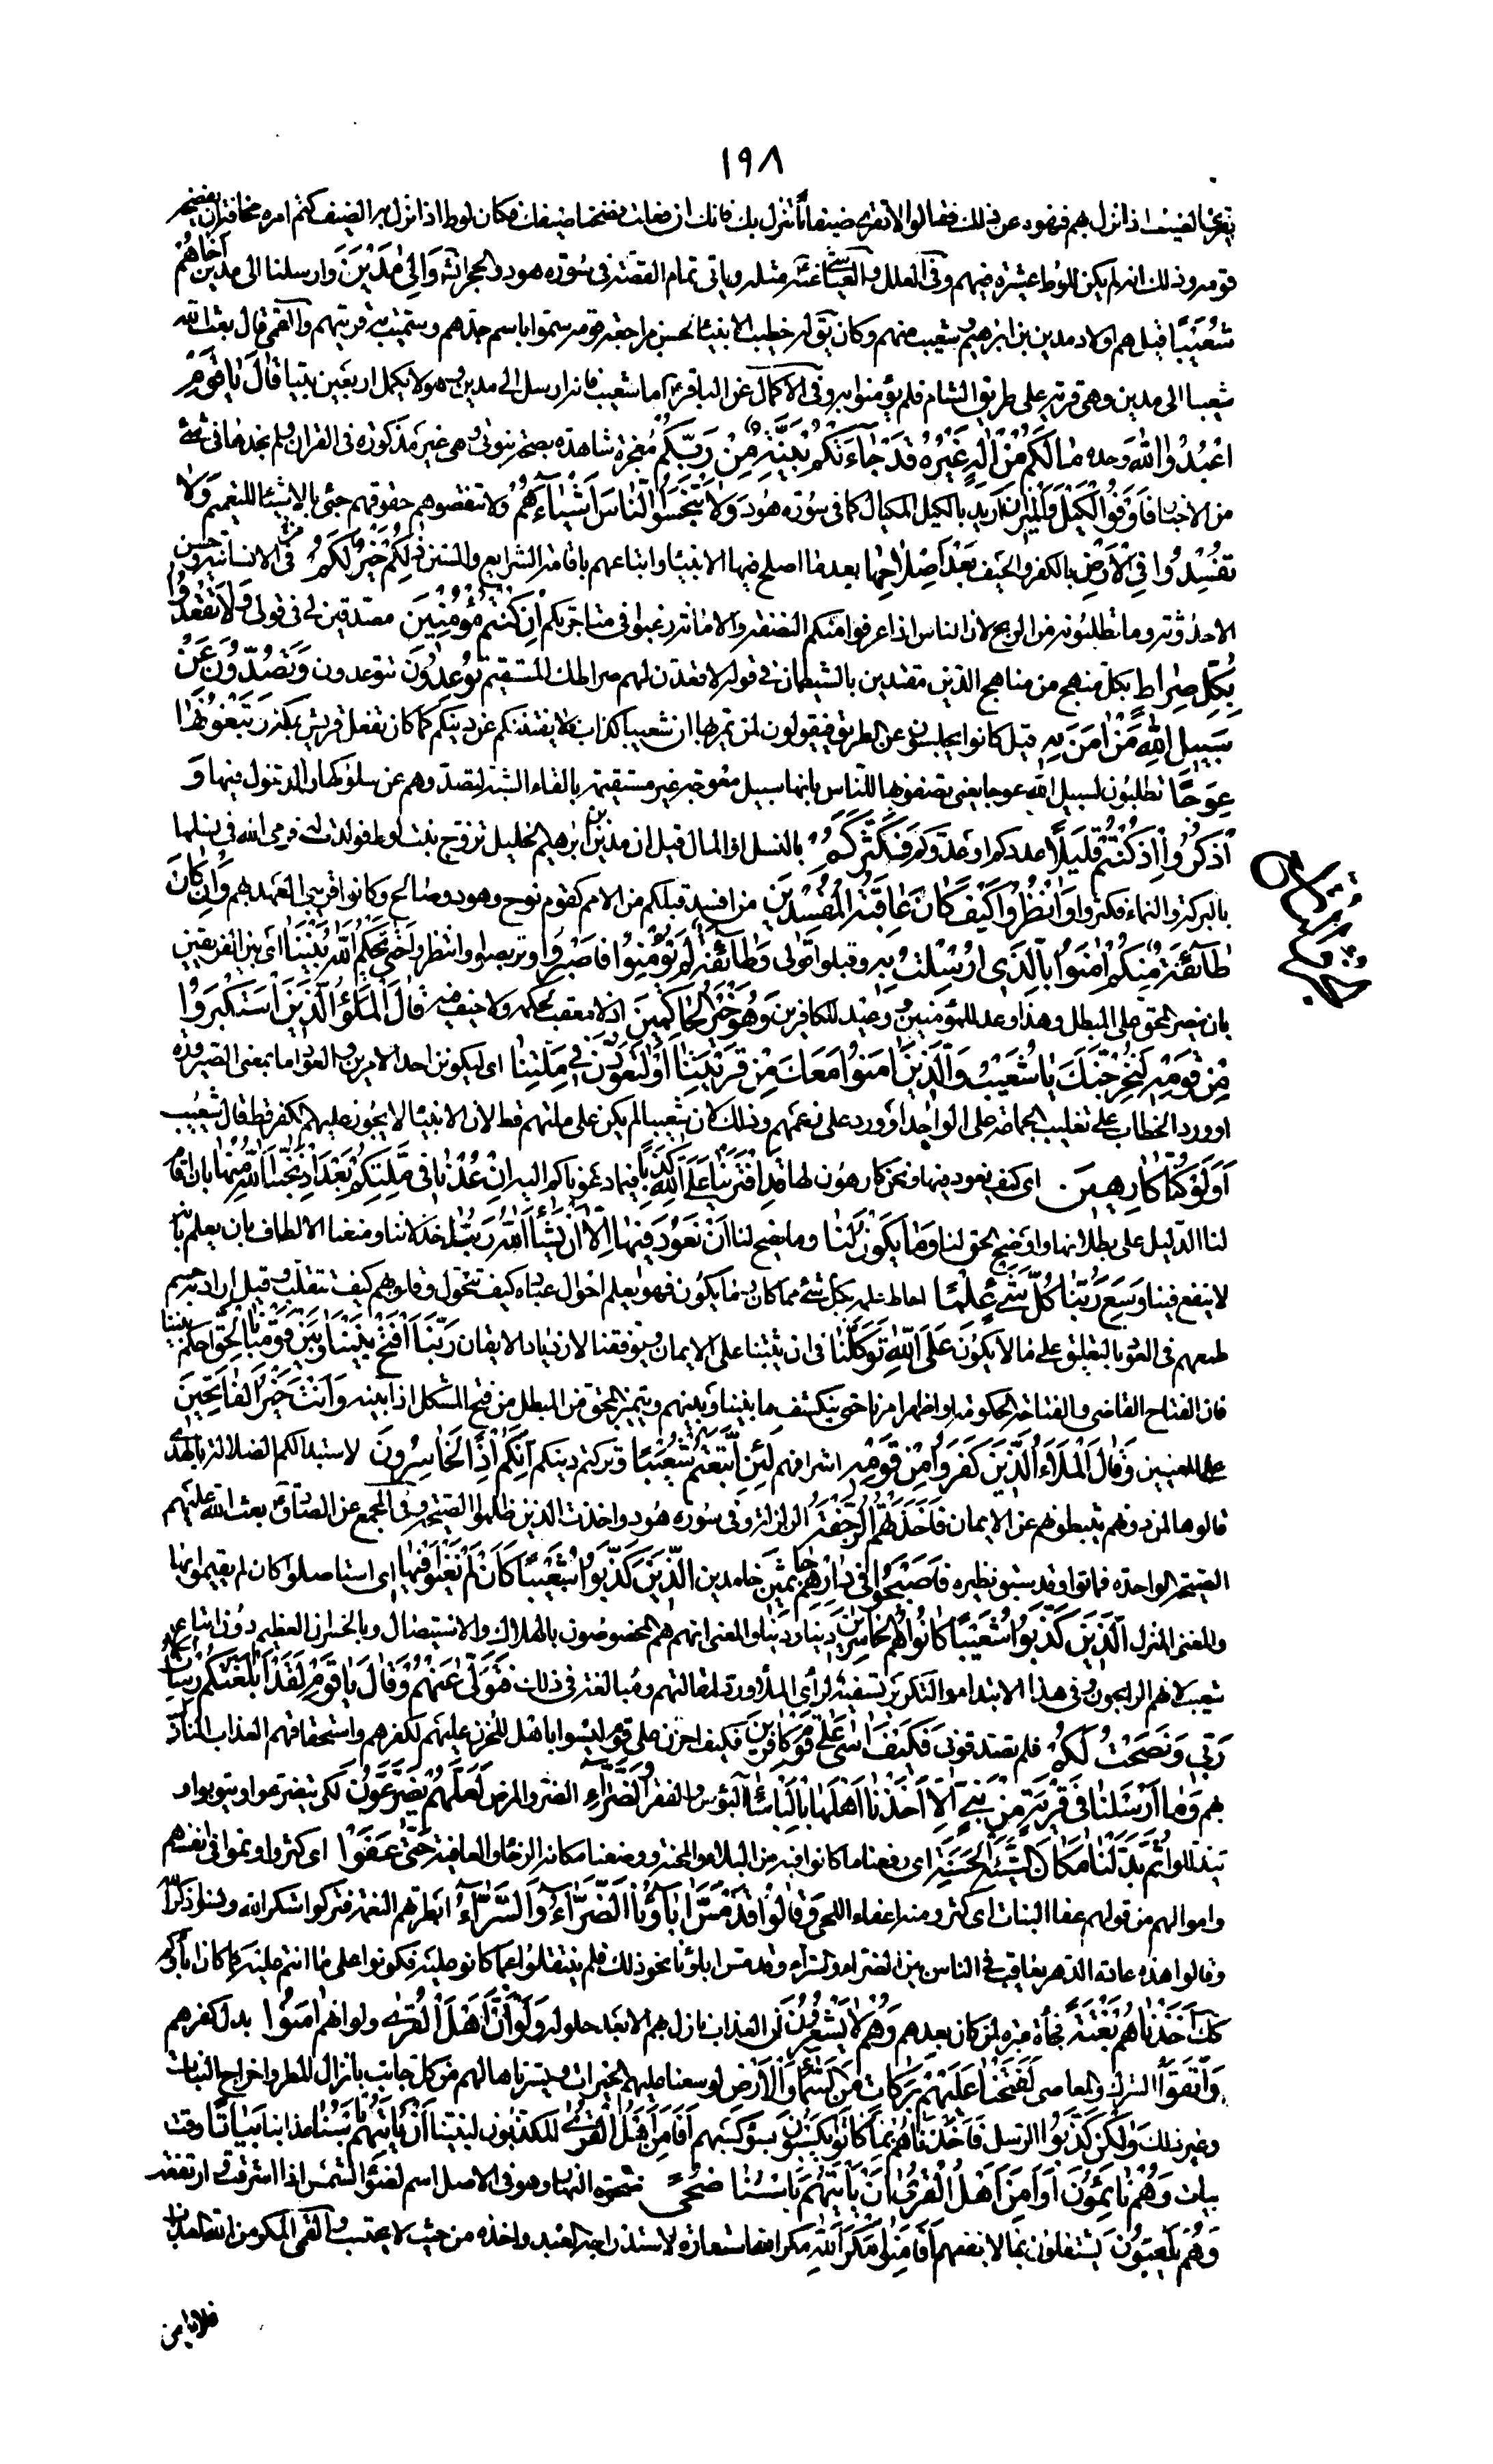 ١٩٨
بقرى الضيف اذا نزل بهم فنهوه عن ذلك فقالوا لا تقرى ضيفا ينزل بك فانك ان فعلت فضحنا ضيفك فكان لوط اذا نزل به الضيف كتم امره مخافة ان يفضحه
قومه وذلك انه لم يكن للوط عشيرة فيهم وفى العلل والعياشى عنه مثله وياتى تمام القصة فى سورة هود والحجر انشه وَاِلىٰ مَدْيَنَ وارسلنا الى مدين اَخٰاهُمْ
شُعَيْبًا قيل هم اولاد مدين بن ابرهيم وشعيب منهم وكان يق له خطيب الانبياء لحسن مراجعته قومه سموا باسم جدهم وسميت به قريتهم والقمى قال بعث الله
شعيبا الى مدين وهى قرية على طريق الشام فلم يؤمنوا به وفى الاكمال عن الباقر ع اما شعيب فانه ارسل الى مدين وهو لا يكمل اربعين بيتا قٰالَ يٰا قَوْمِ
اعْبُدُوا اللّٰهَ وحده مٰا لَكُمْ مِنْ اِلٰهٍ غَيْرُهُ قَدْ جٰاءَتْكُمْ بَيِّنَةٌ مِنْ رَبِّكُمْ معجزة شاهدة بصحة نبوتى وهى غير مذكورة فى القران ولم نجدها فى شئ
من الاخبار فَاَوْفُوا الْكَيْلَ وَالْمِيزٰانَ اريد بالكيل المكيال كما فى سورة هود وَلاٰ تَبْخَسُوا النّٰاسَ اَشْيٰاءَهُمْ ولا تنقصوهم حقوقهم جئ بالاشياء للتعميم وَلاٰ
تُفْسِدُوا فِى الْاَرْضِ بالكفر والحيف بَعْدَ اِصْلاٰحِهٰا بعد ما اصلح فيها الانبياء واتباعهم باقامة الشرايع والسنن ذٰلِكُمْ خَيْرٌ لَكُمْ فى الانسانية وحسن
الاحدوثة وما تطلبونه من الربح لان الناس اذا عرفوا منكم النصفة والامانة رغبوا فى متاجرتكم اِنْ كُنْتُمْ مُؤْمِنِينَ مصدقين لى فى قولى وَلاٰ تَقْعُدُوا
بِكُلِّ صِرٰاطٍ بكل منهج من مناهج الدين مقتدين بالشيطان فى قوله لاقعدن لهم صراطك المستقيم تُوعِدُونَ تتوعدون وَتَصُدُّونَ عَنْ
سَبِيلِ اللّٰهِ مَنْ اٰمَنَ بِهِ قيل كانوا يجلسون عن الطريق فيقولون لمن يمر بها ان شعيبا كذاب فلا يفتننكم عن دينكم كما كان تفعل قريش بمكة وَتَبْغُونَهٰا
عِوَجًا تطلبون لسبيل الله عوجا يعنى تصفونها للناس بانها سبيل معوجة غير مستقيمة بالقاء الشبه لتصدوهم عن سلوكها والدخول فيها وَ
اذْكُرُوا اِذْ كُنْتُمْ قَلِيلًا عددكم او عدتكم فَكَثَّرَكُمْ بالنسل او المال قيل ان مدين بن ابرهيم الخليل تزوج بنت لوط فولدت له فرمى الله فى نسلها
بالبركة والنماء فكثروا وَانْظُرُوا كَيْفَ كٰانَ عٰاقِبَةُ الْمُفْسِدِينَ من افسد قبلكم من الامم كقوم نوح وهود وصالح وكانوا قريبى العهد بهم وَاِنْ كٰانَ
طٰائِفَةٌ مِنْكُمْ اٰمَنُوا بِالَّذِى اُرْسِلْتُ بِهِ وقبلوا قولى وَطٰائِفَةٌ لَمْ يُؤْمِنُوا فَاصْبِرُوا وتربصوا وانتظروا حَتّٰى يَحْكُمَ اللّٰهُ بَيْنَنٰا اى بين الفريقين
بان ينصر المحق على المبطل وهذا وعد للمؤمنين ووعيد للكافرين وَهُوَ خَيْرُ الْحٰاكِمِينَ اذ لا معقب لحكمه ولا حيف فيه قٰالَ الْمَلَأُ الَّذِينَ اسْتَكْبَرُوا
مِنْ قَوْمِهِ لَنُخْرِجَنَّكَ يٰا شُعَيْبُ وَالَّذِينَ اٰمَنُوا مَعَكَ مِنْ قَرْيَتِنٰا اَوْ لَتَعُودُنَّ فِى مِلَّتِنٰا اى ليكونن احد الامرين والعود اما بمعنى الصيرورة
او ورد الخطاب على تغليب الجماعة على الواحد او ورد على زعمهم وذلك لان شعيبا لم يكن على ملتهم قط لان الانبياء لا يجوز عليهم الكفر قط قال شعيب
اَوَلَوْ كُنّٰا كٰارِهِينَ اى كيف نعود فيها ونحن كارهون لها قَدِ افْتَرَيْنٰا عَلَى اللّٰهِ كَذِبًا فيما دعوناكم اليه اِنْ عُدْنٰا فِى مِلَّتِكُمْ بَعْدَ اِذْ نَجّٰانَا اللّٰهُ مِنْهٰا بان اقام
لنا الدليل على بطلانها واوضح الحق لنا وَمٰا يَكُونُ لَنٰا وما يصح لنا اَنْ نَعُودَ فِيهٰا اِلاّٰ اَنْ يَشٰاءَ اللّٰهُ رَبُّنٰا خذلاننا ومنعنا الالطاف بان يعلم بانه
لا ينفع فينا وَسِعَ رَبُّنٰا كُلَّ شَىْءٍ عِلْمًا احاط علمه بكل شئ مما كان وما يكون فهو يعلم احوال عباده كيف تتحول وقلوبهم كيف تتقلب وقيل اراد حسم
طمعهم فى العود بالتعليق على ما لا يكون عَلَى اللّٰهِ تَوَكَّلْنٰا فى ان يثبتنا على الايمان ويوفقنا لازدياد الايقان رَبَّنَا افْتَحْ بَيْنَنٰا وَبَيْنَ قَوْمِنٰا بِالْحَقِّ احكم بيننا
فان الفتاح القاضى والفتاحة الحكومة او اظهر امرنا حتى ينكشف ما بيننا وبينهم ويتميز المحق من المبطل من فتح المشكل اذا بينه وَاَنْتَ خَيْرُ الْفٰاتِحِينَ
على المعنيين وَقٰالَ الْمَلَأُ الَّذِينَ كَفَرُوا مِنْ قَوْمِهِ اشرافهم لَئِنِ اتَّبَعْتُمْ شُعَيْبًا وتركتم دينكم اِنَّكُمْ اِذًا لَخٰاسِرُونَ لاستبدالكم الضلالة بالهدى
قالوها لمن دونهم يثبطونهم عن الايمان فَاَخَذَتْهُمُ الرَّجْفَةُ الزلزلة وفى سورة هود واخذت الذين ظلموا الصيحة وفى المجمع عن الصادق ع بعث الله عليهم
الصيحة الواحدة فماتوا وقد سبق نظيره فَاَصْبَحُوا فِى دٰارِهِمْ جٰاثِمِينَ خامدين الَّذِينَ كَذَّبُوا شُعَيْبًا كَاَنْ لَمْ يَغْنَوْا فِيهٰا اى استاصلوا كان لم يقيموا بها
والمغنى المنزل الَّذِينَ كَذَّبُوا شُعَيْبًا كٰانُوا هُمُ الْخٰاسِرِينَ دينا ودنيا والمعنى انهم هم المخصوصون بالهلاك والاستيصال وبالخسران العظيم دون اتباع
شعيب لانهم الرابحون وفى هذا الابتداء والتكرير تسفيه لرأى الملأ ورد لمقالتهم ومبالغة فى ذلك فَتَوَلّٰى عَنْهُمْ وَقٰالَ يٰا قَوْمِ لَقَدْ اَبْلَغْتُكُمْ رِسٰالاٰتِ
رَبِّى وَنَصَحْتُ لَكُمْ فلم تصدقونى فَكَيْفَ اٰسٰى عَلىٰ قَوْمٍ كٰافِرِينَ فكيف احزن على قوم ليسوا باهل للحزن عليهم لكفرهم واستحقاقهم العذاب النازل
بهم وَمٰا اَرْسَلْنٰا فِى قَرْيَةٍ مِنْ نَبِىٍّ اِلاّٰ اَخَذْنٰا اَهْلَهٰا بِالْبَأْسٰاءِ البؤس والفقر وَالضَّرّٰاءِ الضر والمرض لَعَلَّهُمْ يَضَّرَّعُونَ لكى يتضرعوا ويتوبوا و
يتذللوا ثُمَّ بَدَّلْنٰا مَكٰانَ السَّيِّئَةِ الْحَسَنَةَ اى رفعنا ما كانوا فيه من البلاء والمحنة ووضعنا مكانه الرخاء والعافية حَتّٰى عَفَوْا اى كثروا ونموا فى انفسهم
واموالهم من قولهم عفا النبات اى كثر ومنه اعفاء اللحى وَقٰالُوا قَدْ مَسَّ اٰبٰاءَنَا الضَّرّٰاءُ وَالسَّرّٰاءُ ابطرتهم النعمة فتركوا شكر الله ونسوا ذكر الله
وقالوا هذه عادة الدهر يعاقب فى الناس بين الضراء والسراء وقد مس اباؤنا نحو ذلك فلم ينتقلوا عما كانوا عليه فكونوا على ما انتم عليه كما كان اباؤكم
كك فَاَخَذْنٰاهُمْ بَغْتَةً فجأة عبرة لمن كان بعدهم وَهُمْ لاٰ يَشْعُرُونَ ان العذاب نازل بهم الا بعد حلوله وَلَوْ اَنَّ اَهْلَ الْقُرىٰ ولو انهم اٰمَنُوا بدل كفرهم
وَاتَّقَوْا الشرك والمعاصى لَفَتَحْنٰا عَلَيْهِمْ بَرَكٰاتٍ مِنَ السَّمٰاءِ وَالْاَرْضِ لوسعنا عليهم الخيرات ويسرناها لهم من كل جانب بانزال المطر واخراج النبات
وغير ذلك وَلٰكِنْ كَذَّبُوا الرسل فَاَخَذْنٰاهُمْ بِمٰا كٰانُوا يَكْسِبُونَ بسوء كسبهم اَفَاَمِنَ اَهْلُ الْقُرىٰ المكذبون لنبينا اَنْ يَأْتِيَهُمْ بَأْسُنٰا عذابنا بَيٰاتًا وقت
بيات وَهُمْ نٰائِمُونَ اَوَاَمِنَ اَهْلُ الْقُرىٰ اَنْ يَأْتِيَهُمْ بَأْسُنٰا ضُحًى ضحوة النهار وهو فى الاصل اسم لضوء الشمس اذا اشرقت وارتفعت
وَهُمْ يَلْعَبُونَ يشتغلون بما لا ينفعهم اَفَاَمِنُوا مَكْرَ اللّٰهِ مكر الله استعارة لاستدراجه العبد واخذه من حيث لا يحتسب والقمى المكر من الله العذاب
فلا يامن